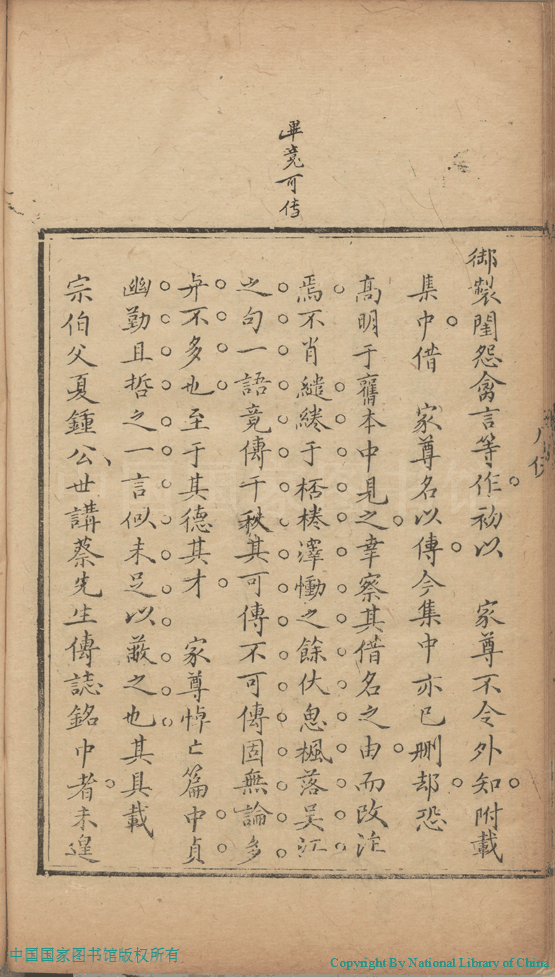 畢竟可传
御製閨怨禽言等作初以　家尊不令外知附載
集中借　家尊名以傳今集中亦已刪却恐
高明于舊本中見之幸察其借名之由而改注
焉不肖繾綣于桮棬澤慟之餘伏思楓落吳江
之句一語竟傳千秋其可傳不可傳固無論多
與不多也至于其德其才　家尊悼亡篇中貞
幽勤且哲之一言似未足以蔽之也其具載
宗伯父夏鍾公世講蔡先生傳誌銘中者未遑
中国国家图书馆版权所有
Copyright By National Library of China